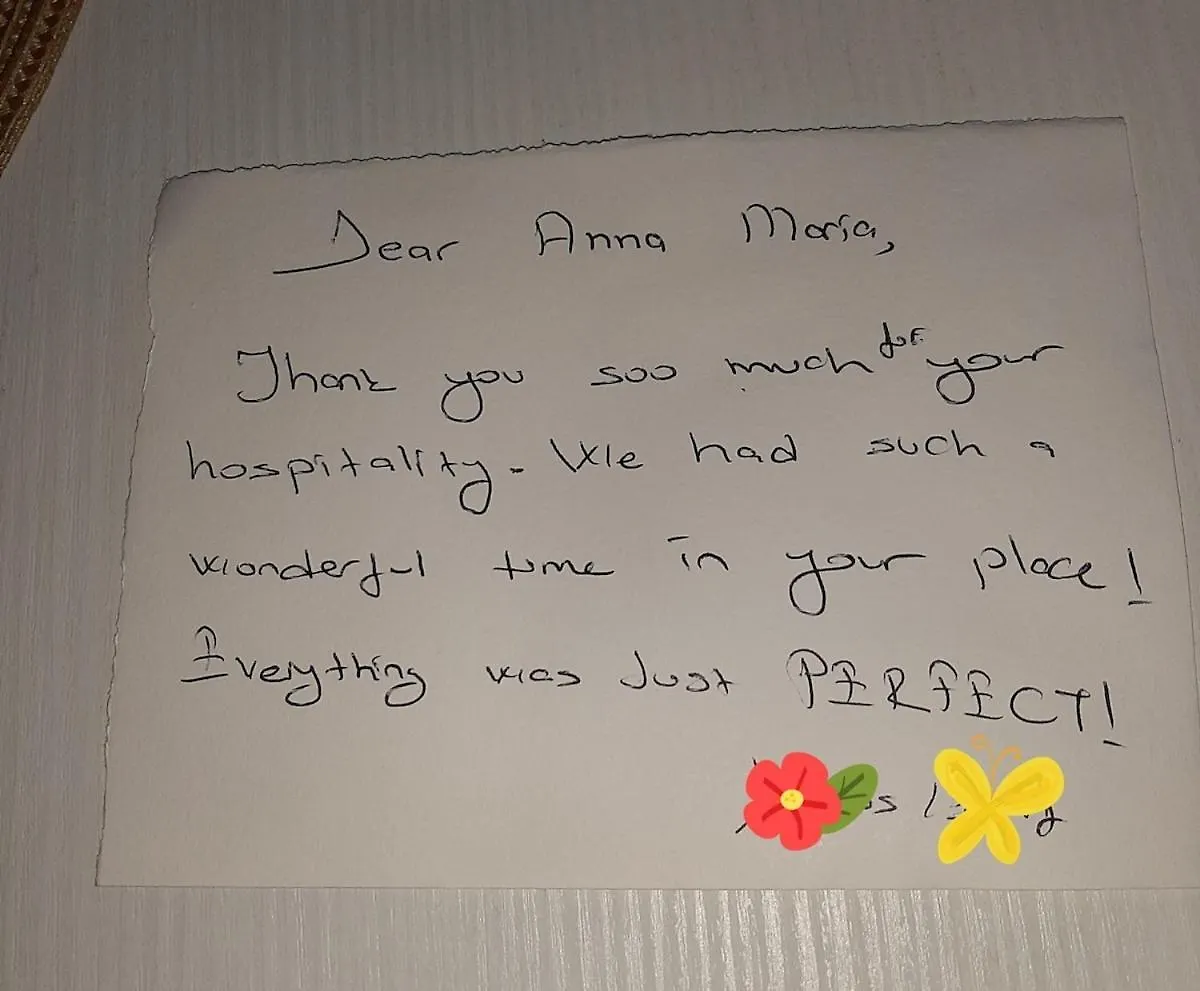 Dear Anna Maria,
Thank you soo much for your
hospitality. We had such a
wonderful time in your place!
Everything was Just PERFECT!